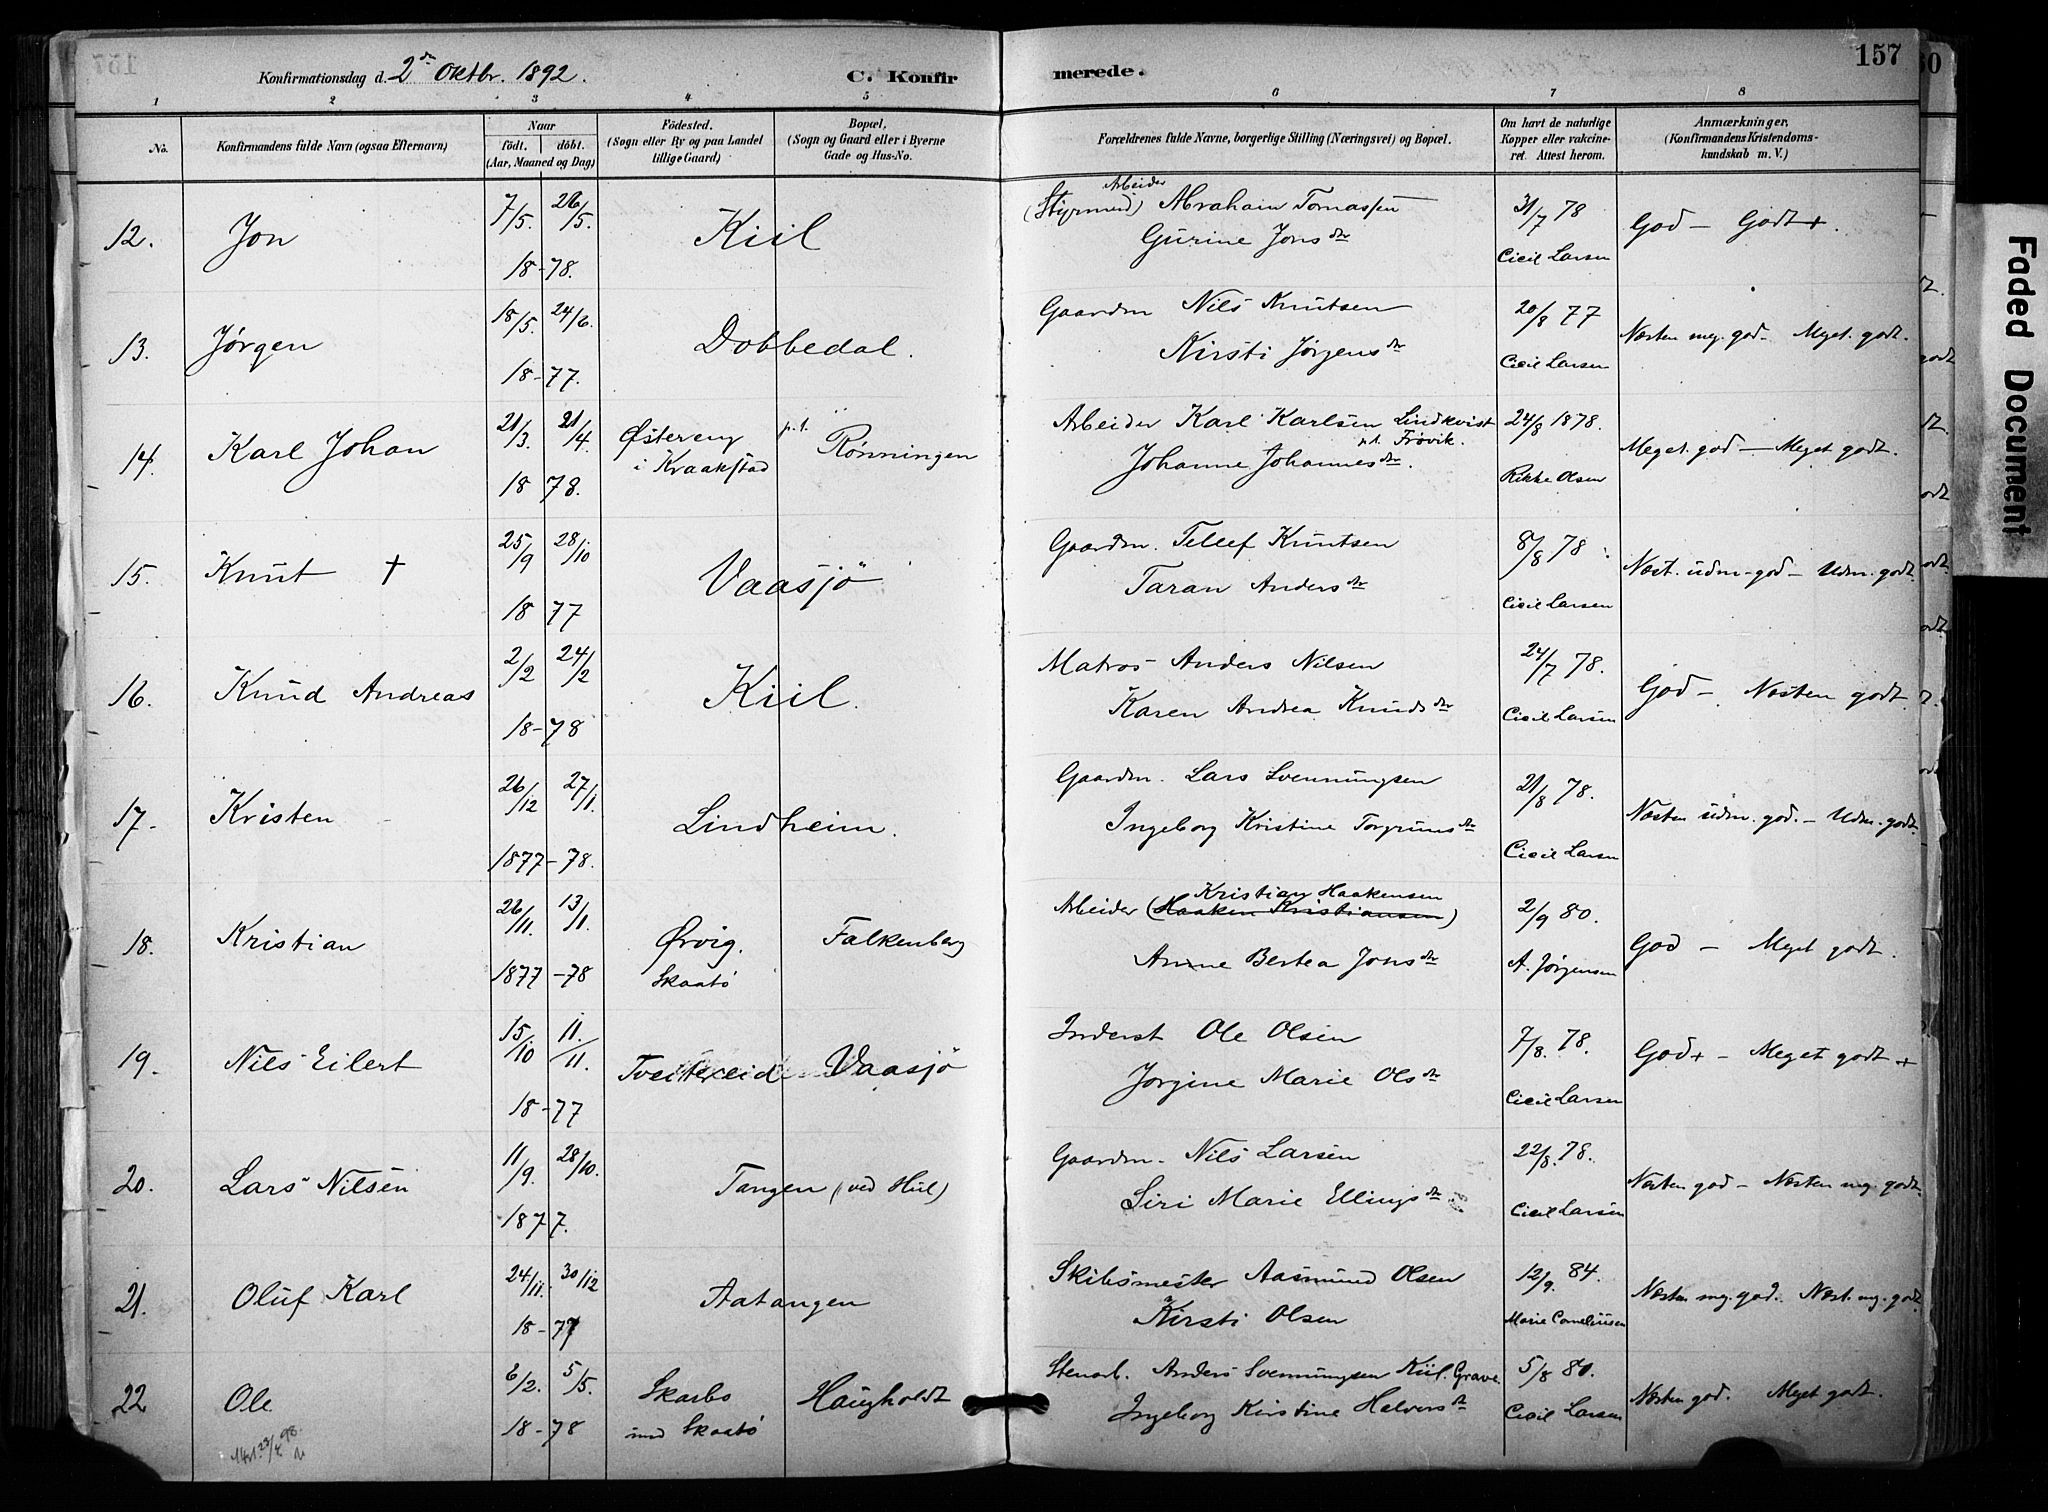 157
Konfirmationsdag d. 2den Oktbr. 1892.
C. Konfirmerede.
1 2 3 4 5 6 7 8
No.
Konfirmandens fulde Navn (ogsaa Efternavn)
Naar
födt. döbt.
(Aar, Maaned og Dag)
Födested.
(Sogn eller By og paa Landet tillige Gaard)
Bopæl.
(Sogn og Gaard eller i Byerne Gade og Hus-No.
Forældrenes fulde Navne, borgerlige Stilling (Næringsvei) og Bopæl.
Om havt de naturlige Kopper eller vakcineret. Attest herom.
Anmærkninger,
(Konfirmandens Kristendomskundskab m. V.)
12. Jon 7/5. 26/5. 18-78. Kiil
Arbeider
(Styrmd) Abraham Tomassen 31/7 78 God – Godt+.
Gurine Jonsdtr Cicil Larsen
13. Jørgen 18/5. 24/6. 18-77. Dobbedal.
Gaardm Nils Knutsen 20/8 77 Næsten meg. god – Meget. godt.
Kirsti Jørgensdtr Cicil Larsen
14. Karl Johan 21/3. 21/4. 18 78. Østereng i Kraakstad p.t. Rønningen
Arbeider Karl Karlsen Lindkvist 24/8 1878. Meget. god – Meget godt.
p.t. Frøvik.
Johanne Johannesdtr. Rikke Olsen
15. Knut + 25/9 28/10 18 77 Vaasjö
Gaardm. Tellef Knutsen 8/8 78 Næst. udm. god – Udm. godt.
Taran Andersdtr Cicil Larsen
16. Knud Andreas 2/2 24/2 18-78 Kiil.
Matros Anders Nilsen 24/7 78. God – Næsten godt.
Karen Andrea Knudsdtr Cicil Larsen
17. Kristen 26/12 27/1. 1877-78. Lindheim.
Gaardm. Lars Svennungsen 21/8 78. Næsten udm. god. – Udm. godt.
Ingeborg Kristine Torgrimsdtr Cicil Larsen
18. Kristian 26/11. 13/1. 1877-78 Ørvig. Skaatö Falkenberg
Kristian Haakensen
Arbeider (Haaken Kristiansen) 2/9 80. God – Meget godt.
Anne Bertea Jonsdtr A. Jørgensen
19. Nils Eilert 15/10 11./11. 18-77 Tveitereid Vaasjö
Inderst Ole Olsen 7/8. 78. God+ – Meget godt+
Jorgine Marie Olsdtr Cicil Larsen
20. Lars Nilsen 11/9. 28/10. 1877. Tangen (ved Hul)
Gaardm. Nils Larsen 22/8. 78. Næsten god – Næsten mg. godt.
Siri Marie Ellingsdtr Cicil Larsen
21. Oluf Karl 24/11. 30/12 18-77 Aatangen
Skibsmester Aasmund Olsen 12/9. 84. Næsten mg. god. Næst. mg. godt.
Kirsti Olsen Marie Corneliusen
22 Ole 6/2. 5/5. 18-78 Skarbo ind Skaatö Haugholdt
Stenarb. Anders Svennungsen Kiil. Grave 5/8 80. Næsten god. Meget godt.
Ingeborg Kirstine Halvorsdtr Cicil Larsen
Faded Document